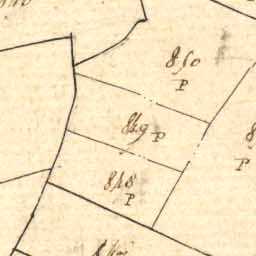 850
P
849 P
848
P
P